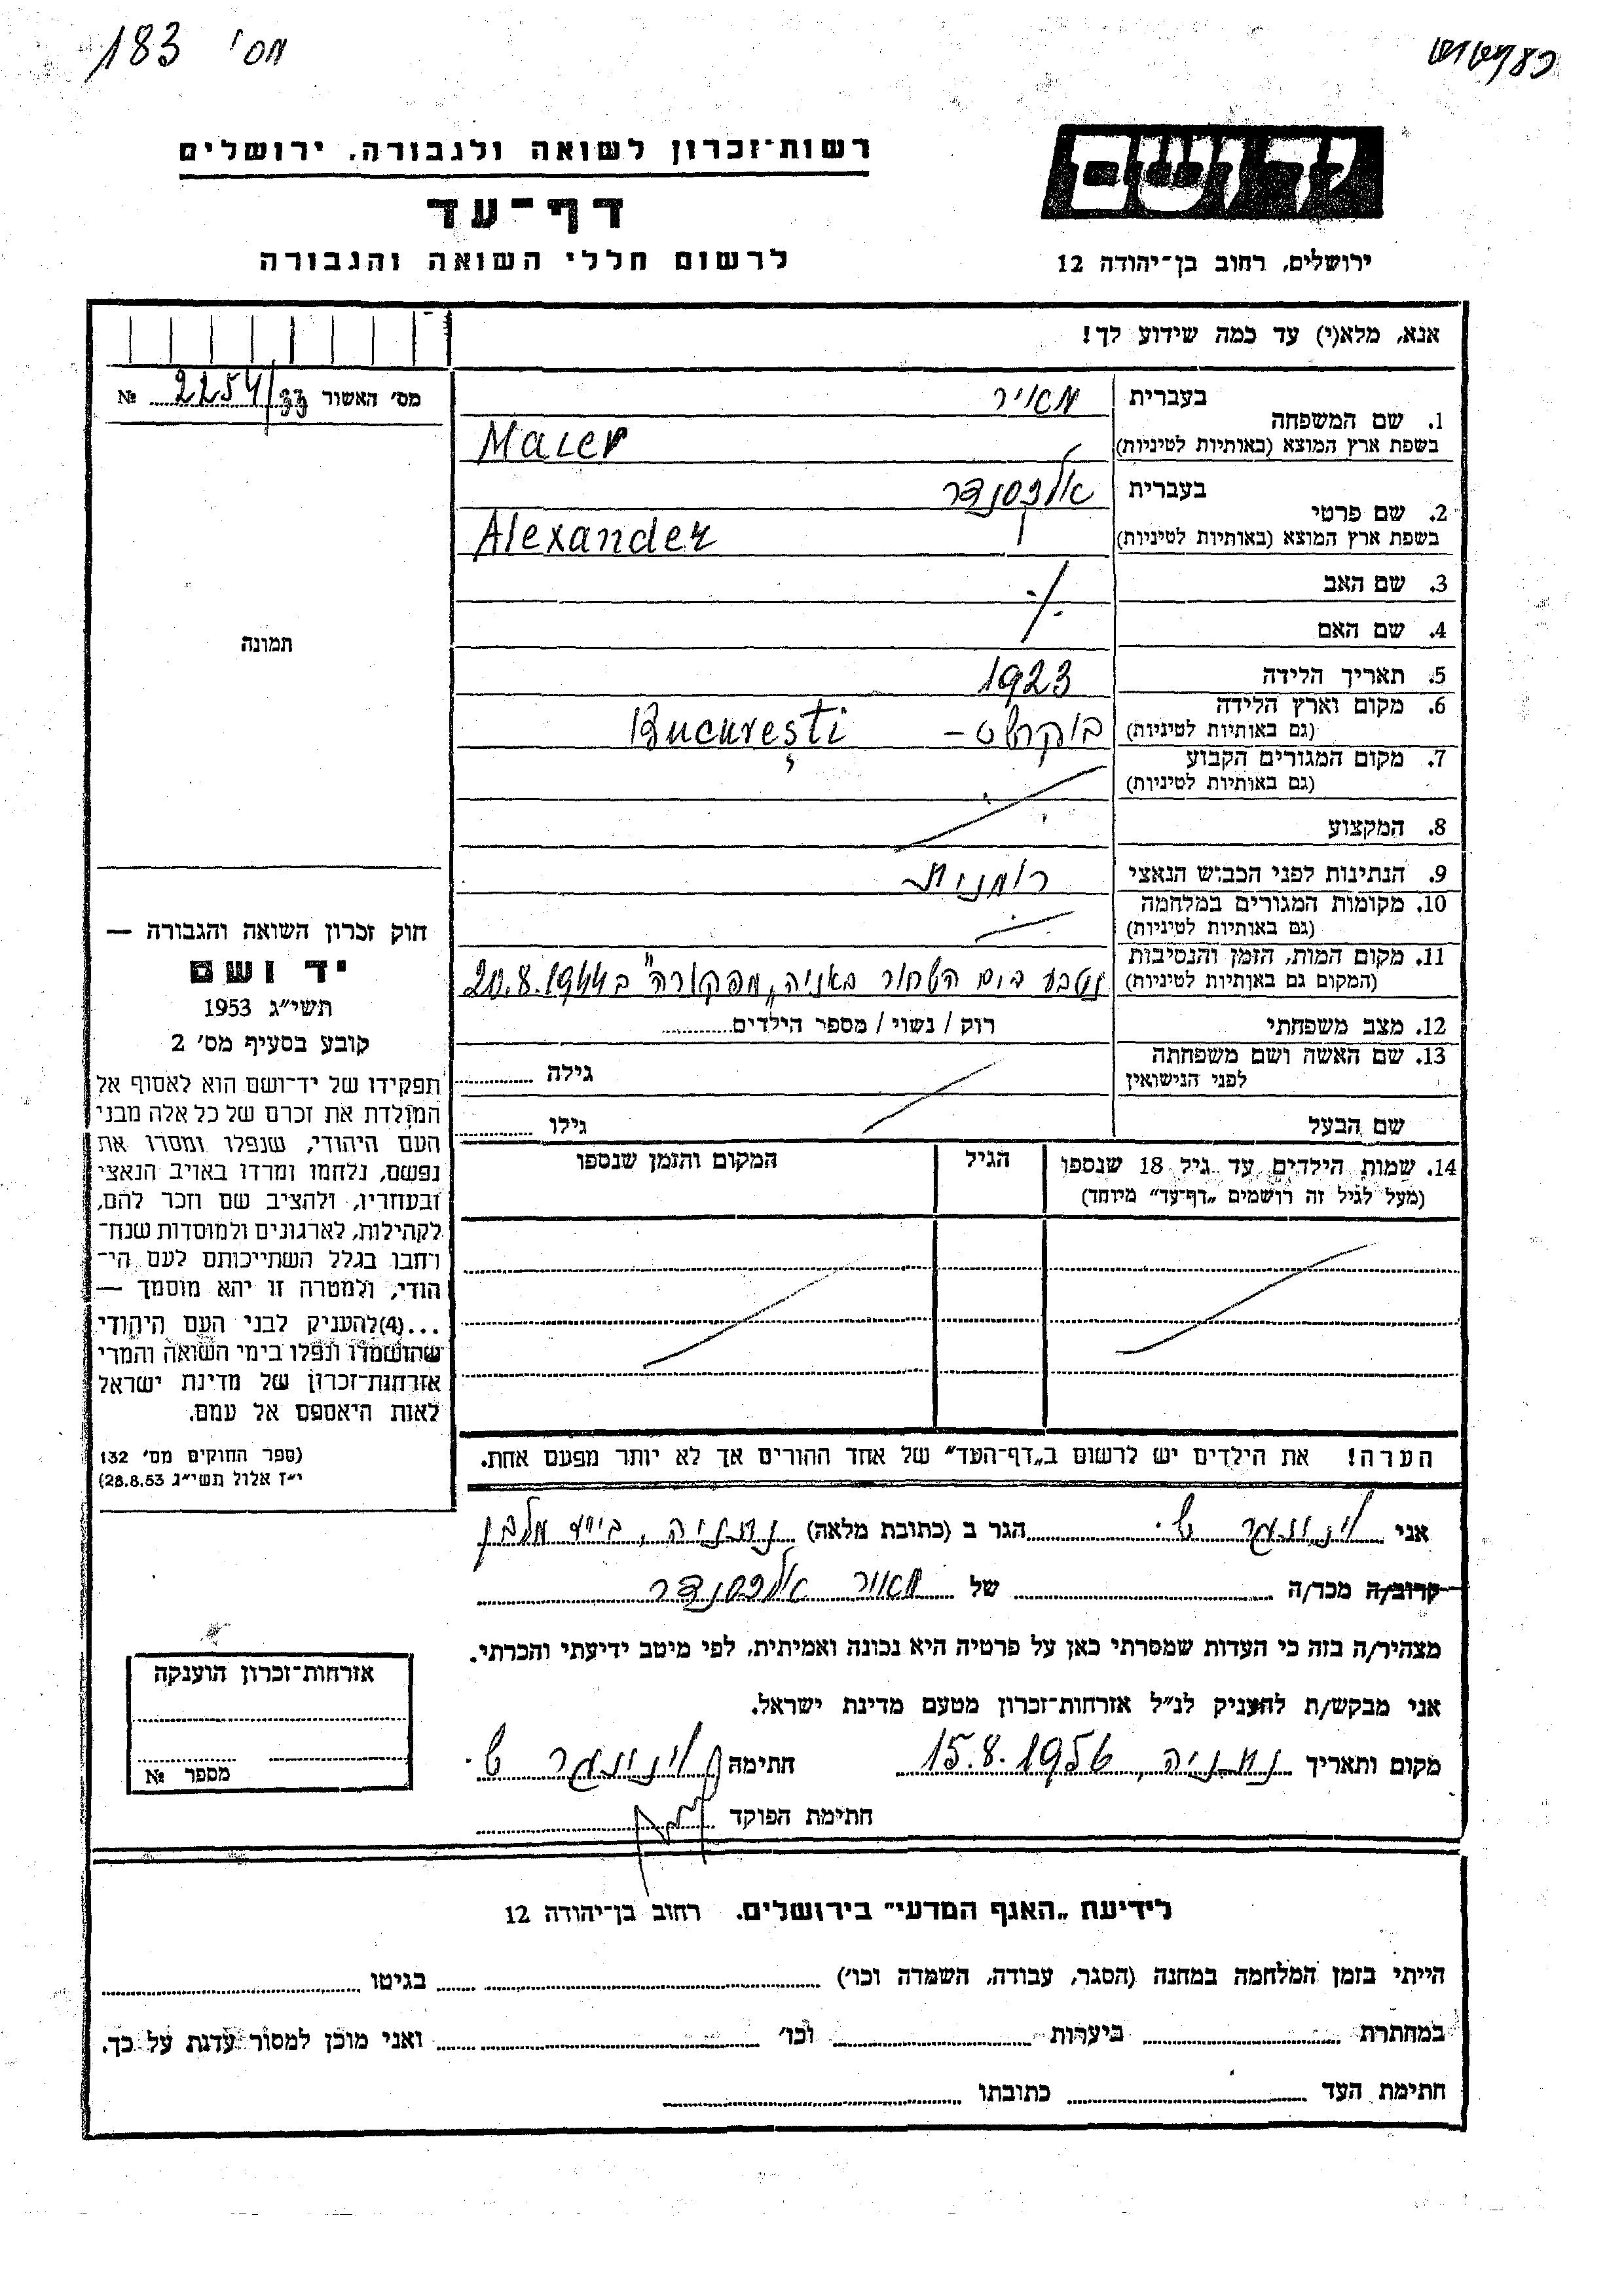 מס' 183
רשות־זכרון לשואה ולגבורה, ירושלים
דף־עד
לרשום חללי השואה והגבורה
יד ושם
ירושלים, רחוב בן־יהודה 12
אנא, מלא(י) עד כמה שידוע לך!
מס' האשור 2254/33 №
1. שם המשפחה
בעברית מאיר
בשפת ארץ המוצא (באותיות לטיניות) Maier
2. שם פרטי
בעברית אלכסנדר
בשפת ארץ המוצא (באותיות לטיניות) Alexander
3. שם האב
4. שם האם
5. תאריך הלידה 1923
6. מקום וארץ הלידה
(גם באותיות לטיניות) בוקרשט – Bucureşti
7. מקום המגורים הקבוע
(גם באותיות לטיניות)
8. המקצוע
9. הנתינות לפני הכבוש הנאצי רומנית
10. מקומות המגורים במלחמה
(גם באותיות לטיניות)
11. מקום המות, הזמן והנסיבות
(המקום גם באותיות לטיניות) נטבע בים השחור באניה „מפקורה" ב 20.8.1944
12. מצב משפחתי רוק / נשוי / מספר הילדים
13. שם האשה ושם משפחתה
לפני הנישואין גילה
שם הבעל גילו
14. שמות הילדים עד גיל 18 שנספו הגיל המקום והזמן שנספו
(מעל לגיל זה רושמים „דף־עד" מיוחד)
הערה! את הילדים יש לרשום ב„דף־העד" של אחד ההורים אך לא יותר מפעם אחת.
תמונה
חוק זכרון השואה והגבורה —
יד ושם
תשי"ג 1953
קובע בסעיף מס' 2
תפקידו של יד־ושם הוא לאסוף אל
המולדת את זכרם של כל אלה מבני
העם היהודי, שנפלו ומסרו את
נפשם, נלחמו ומרדו באויב הנאצי
ובעוזריו, ולהציב שם וזכר להם,
לקהילות, לארגונים ולמוסדות שנח־
רחבו בגלל השתייכותם לעם הי־
הודי, ולמטרה זו יהא מוסמך —
...(4)להעניק לבני העם היהודי
שהושמדו ונפלו בימי השואה והמרי
אזרחות־זכרון של מדינת ישראל
לאות היאספם אל עמם.
(ספר החוקים מס' 132
י"ז אלול תשי"ג 28.8.53)
אני וינוגר ש. הגר ב (כתובת מלאה) נתניה,
קרוב/ה מכר/ה של מאיר אלכסנדר
מצהיר/ה בזה כי העדות שמסרתי כאן על פרטיה היא נכונה ואמיתית, לפי מיטב ידיעתי והכרתי.
אני מבקש/ת להעניק לנ"ל אזרחות־זכרון מטעם מדינת ישראל.
מקום ותאריך נתניה, 15.8.1956 חתימה וינוגר ש.
חתימת הפוקד
אזרחות־זכרון הוענקה
מספר №
לידיעת „האגף המדעי" בירושלים. רחוב בן־יהודה 12
הייתי בזמן המלחמה במחנה (הסגר, עבודה, השמדה וכו') בגיטו
במחתרת ביערות וכו' ואני מוכן למסור עדות על כך.
חתימת העד כתובתו